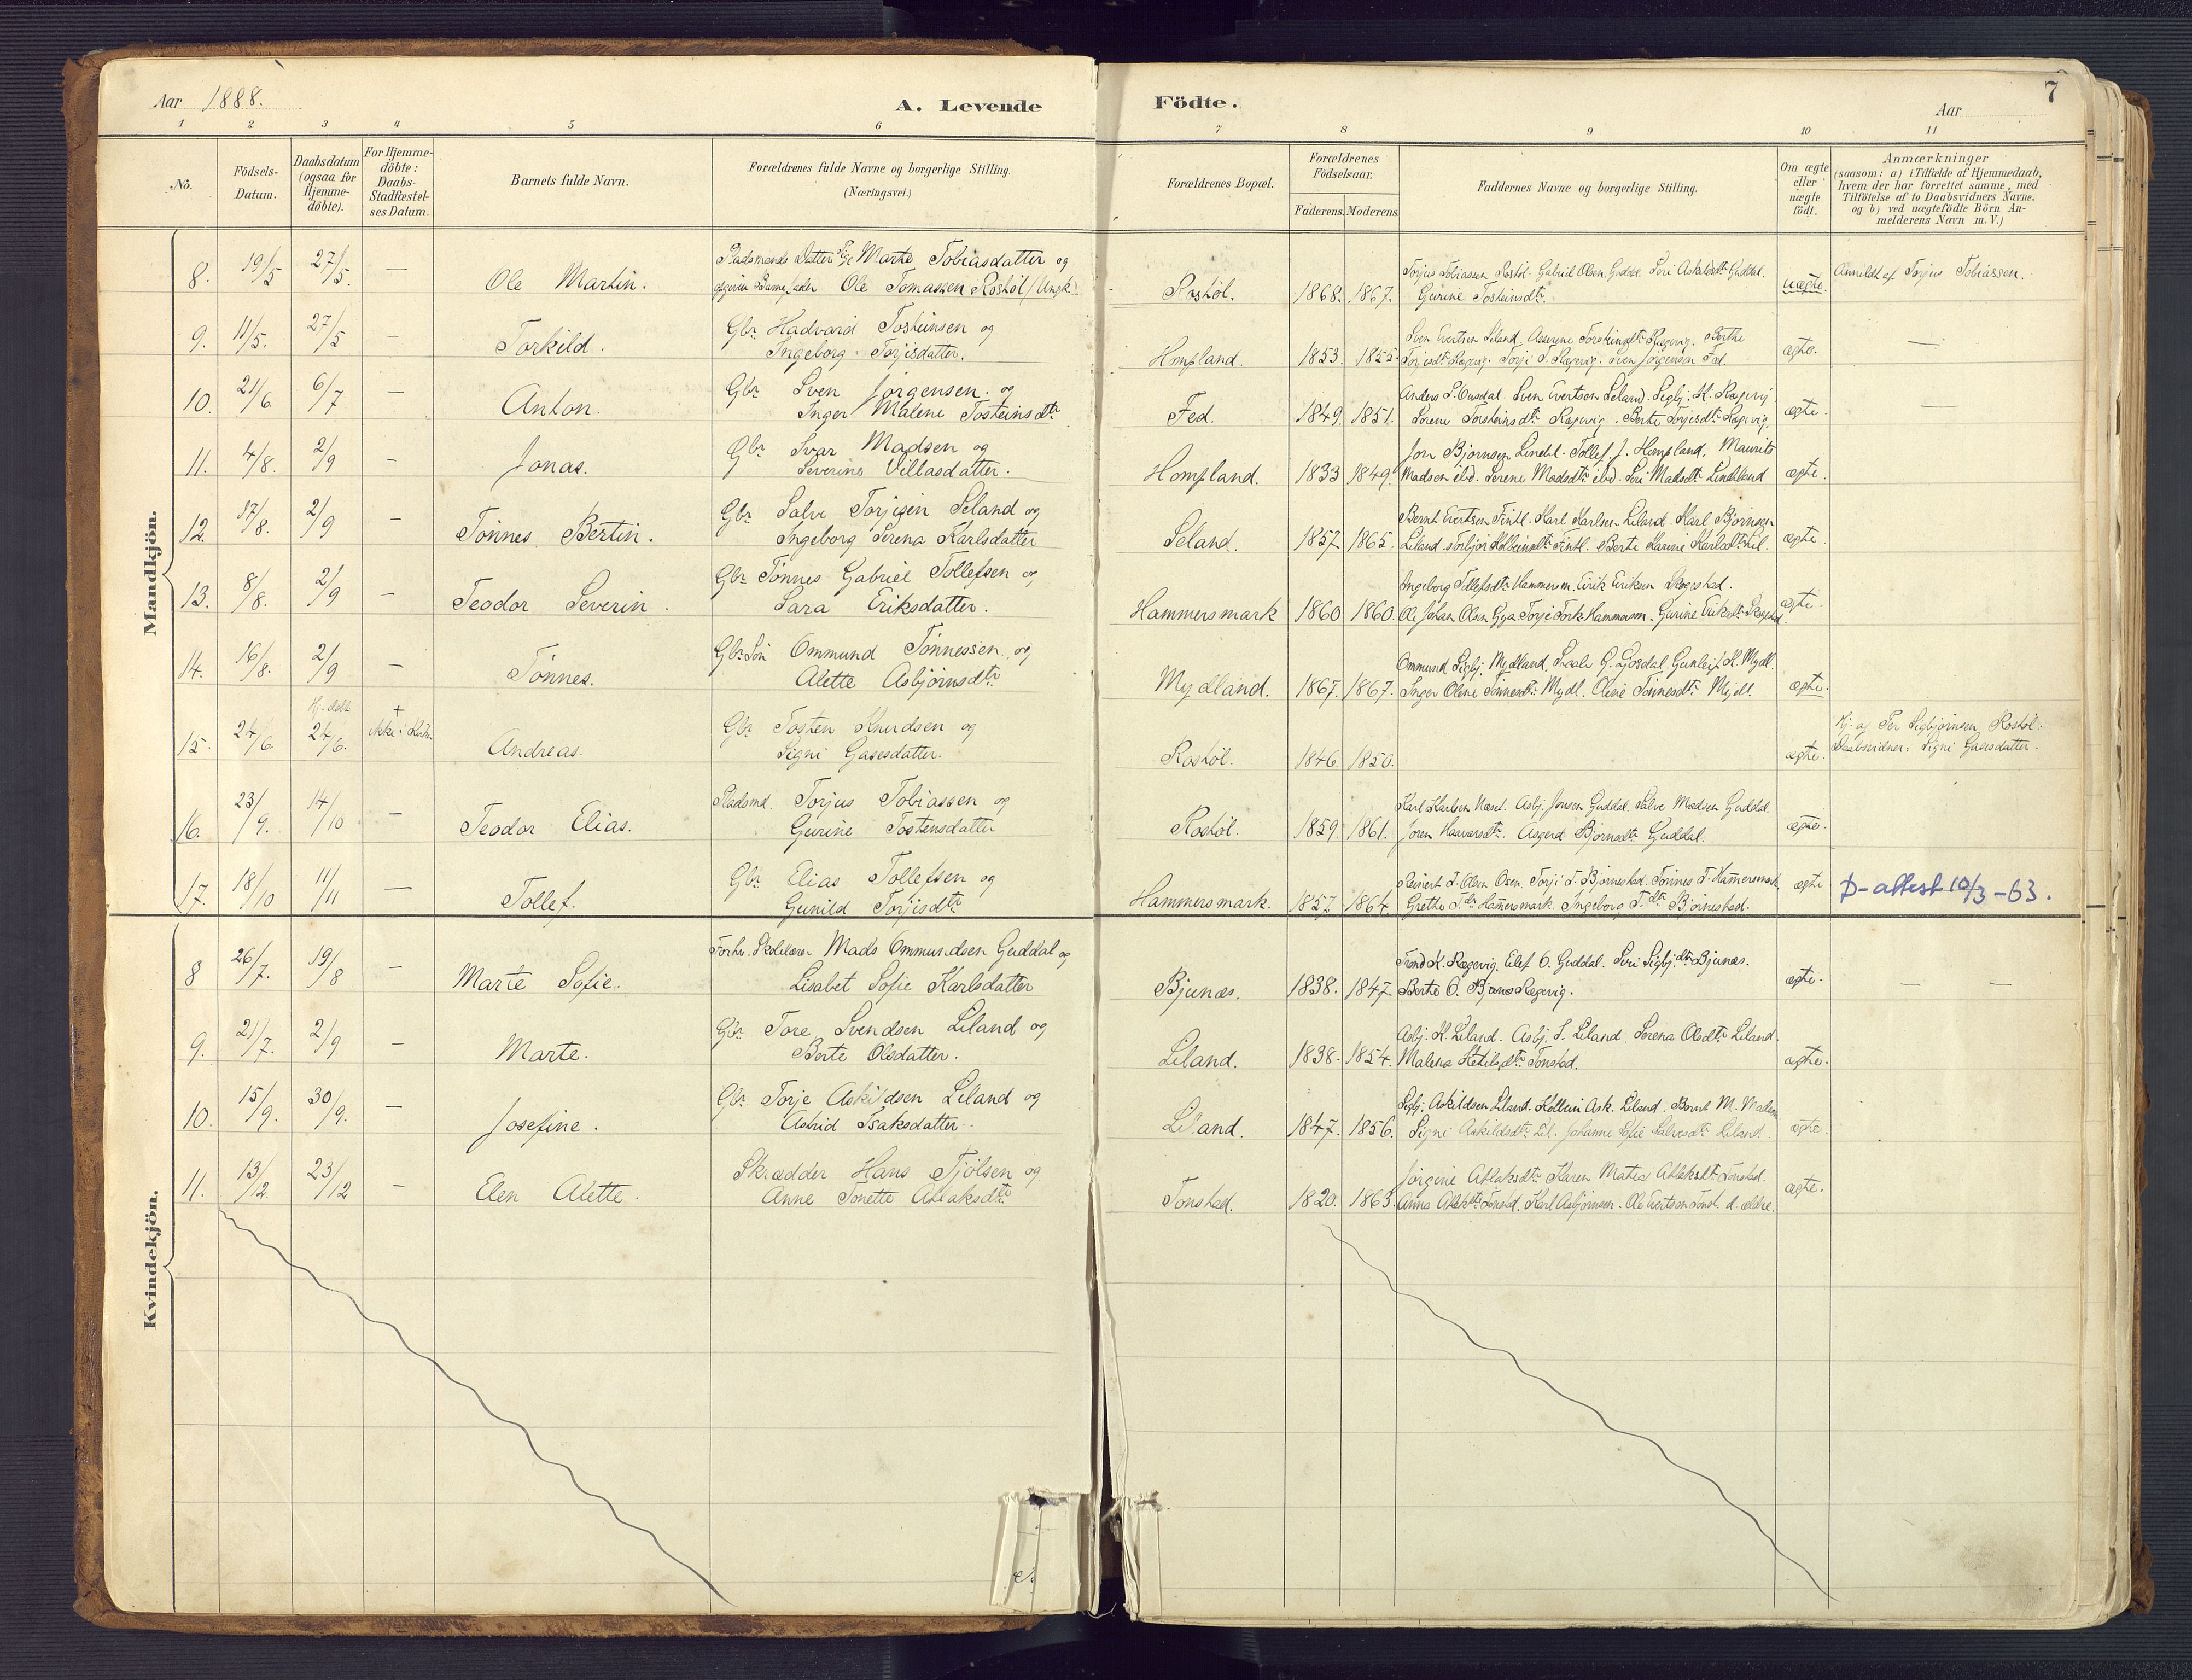 7
Aar 1888.
A. Levende Födte.
Aar
1 2 3 4 5 6 7 8 9 10 11
No.
Födsels-Datum.
Daabsdatum (ogsaa for Hjemme-döbte).
For Hjemme-döbte: Daabs-Stadfæstel-ses Datum.
Barnets fulde Navn.
Forældrenes fulde Navne og borgerlige Stilling. (Næringsvei.)
Forældrenes Bopæl.
Forældrenes Födselsaar.
Faderens. Moderens.
Faddernes Navne og borgerlige Stilling.
Om ægte eller uægte födt.
Anmærkninger (saasom: a) i Tilfælde af Hjemmedaab, hvem der har forrettet samme, med Tilföielse af to Daabsvidners Navne, og b) ved uægtefödte Börn An-melderens Navn m. V.)
Mandkjön.
8. 19/5 27/5. — Ole Martin.
Pladsmands Datter Marte Tobiasdatter og
Barnefader Ole Tomassen Rostöl (Ungk.)
Rostöl. 1868. 1867.
Torjus Tobiassen Rostöl. Gabriel Olsen Guddal. Siri Askildsdtr Guddal.
Gurine Tosteinsdtr.
uægte. Anmeldt af Torjus Tobiassen.
9. 11/5. 27/5 — Torkild.
Gbr. Hadvard Tosteinsen og
Ingeborg Torjisdatter.
Hompland. 1853. 1855.
Sven Evertsen Seland, Torsteinsdtr Ragevig. Berthe
Torjesdtr Ragevig. Torje S. Ragevig. Sven Jörgensen Fed.
ægte. —
10. 21/6 6/7 — Anton.
Gbr. Sven Jörgensen og
Inger Malene Tosteinsdtr
Fed. 1849. 1851.
Anders S. Ousdal. Sven Evertsen Seland. Sigbj. K. Ragevig
Sorene Torsteinsdtr Ragevig. Berte Torjisdtr Ragevig.
ægte. —
11. 4/8. 2/9 — Jonas.
Gbr. Ivar Madsen og
Severine Villasdatter.
Hompland. 1833 1849.
Jon Björnsen Lindel. Tollef J. Hompland, Maurits
Madsen ibd. Serene Madsdtr ibd. Siri Madsdtr Lindeland
ægte.
12. 17/8. 2/9 — Tönnes Bertin.
Gbr. Salve Torjesen Seland og
Ingeborg Serena Karlsdatter
Seland. 1857. 1865.
Bernt Evertsen Fintl. Karl Karlsen Liland. Karl Björnsen
Liland. Torbjör Kolbeinsdtr Fintl. Berte Karine Karlsdtr Lil.
ægte.
13. 8/8. 2/9 — Teodor Severin.
Gbr. Tönnes Gabriel Tollefsen og
Sara Eriksdatter.
Hammersmark 1860 1860.
Ingeborg Tollefsdtr Hammersm. Eirik Eriksen Skogestad.
Ole Johan Olsen Gya. Torje Tork. Hammersm. Gurine Eriksdtr Skogestad
ægte.
14. 16/8. 2/9 — Tönnes.
Gbr. Sön Ommund Tönnessen og
Alette Asbjörnsdtr
Mydland. 1867. 1867.
Ommund Sigbj. Mydland. G. Gosdal. Gunleif K. Mydl.
Inger Oline Tönnesdtr Mydl. Oline Tönnesdtr Mydl.
ægte.
15. 24/6 Hj. döbt 24/6. + ikke i Kirke Andreas.
Gbr. Tosten Knudsen og
Signi Gasesdatter.
Rostöl. 1846. 1850.
ægte. Hj. af Per Sigbjörnsen Rostöl.
Daabsvidner: Signi Gasesdatter.
16. 23/9. 14/10 — Teodor Elias.
Pladsmd. Torjus Tobiassen og
Gurine Tostensdatter
Rostöl. 1859. 1861.
Karl Karlsen Næsel. Asbj. Jonsen Guddal. Salve Madsen Guddal.
Joren Haavarsdtr. Asgerd Björnsdtr Guddal.
ægte.
17. 18/10 11/11 — Tollef.
Gbr. Elias Tollefsen og
Gunild Torjisdtr
Hammersmark. 1857. 1864.
Reinert T. Olsen Osen. Torje T. Björnestad. Tönnes T. Hammersmark
Grethe T.dtr Hammersmark. Ingeborg T.dtr Björnestad.
ægte D-attest 10/3-63.
Kvindekjön.
8 26/7. 19/8 — Marte Sofie.
Forhv. Skolelærer Mads Ommundsen Guddal og
Lisabet Sofie Karlsdatter
Bjunæs. 1838. 1847.
Trond K. Ragevig. Eilef O. Guddal. Siri Sigbj.dtr Bjunæs.
Berte O. Ragevig.
ægte. — —
9. 21/7. 2/9 — Marte.
Gbr. Tore Svendsen Liland og
Berte Olsdatter.
Liland. 1838. 1854.
Asbj. K. Liland. Asbj. S. Liland. Serena Olsdtr Liland.
Malena Ketilsdtr Tonstad.
ægte.
10. 15/9. 30/9. — Josefine.
Gbr. Torje Askildsen Liland og
Astrid Isaksdatter.
Liland. 1847. 1856.
Sigbj. Askildsen Liland. Kolbein Ask. Liland. Bernt M. Madsen
Signi Askildsdtr Lil. Johanne Sofie Salvesdtr Liland.
ægte.
11. 13/12. 23/12 — Elen Alette.
Skrædder Hans Tjölsen og
Anne Tonette Atlaksdtr
Tonstad. 1820. 1863.
Jörgine Atlaksdtr. Karen Matea Atlaksdtr Tonstad.
Anna Tonstad. Karl Asbjörnsen. Ole Evertsen Tonst. d. ældre.
ægte.